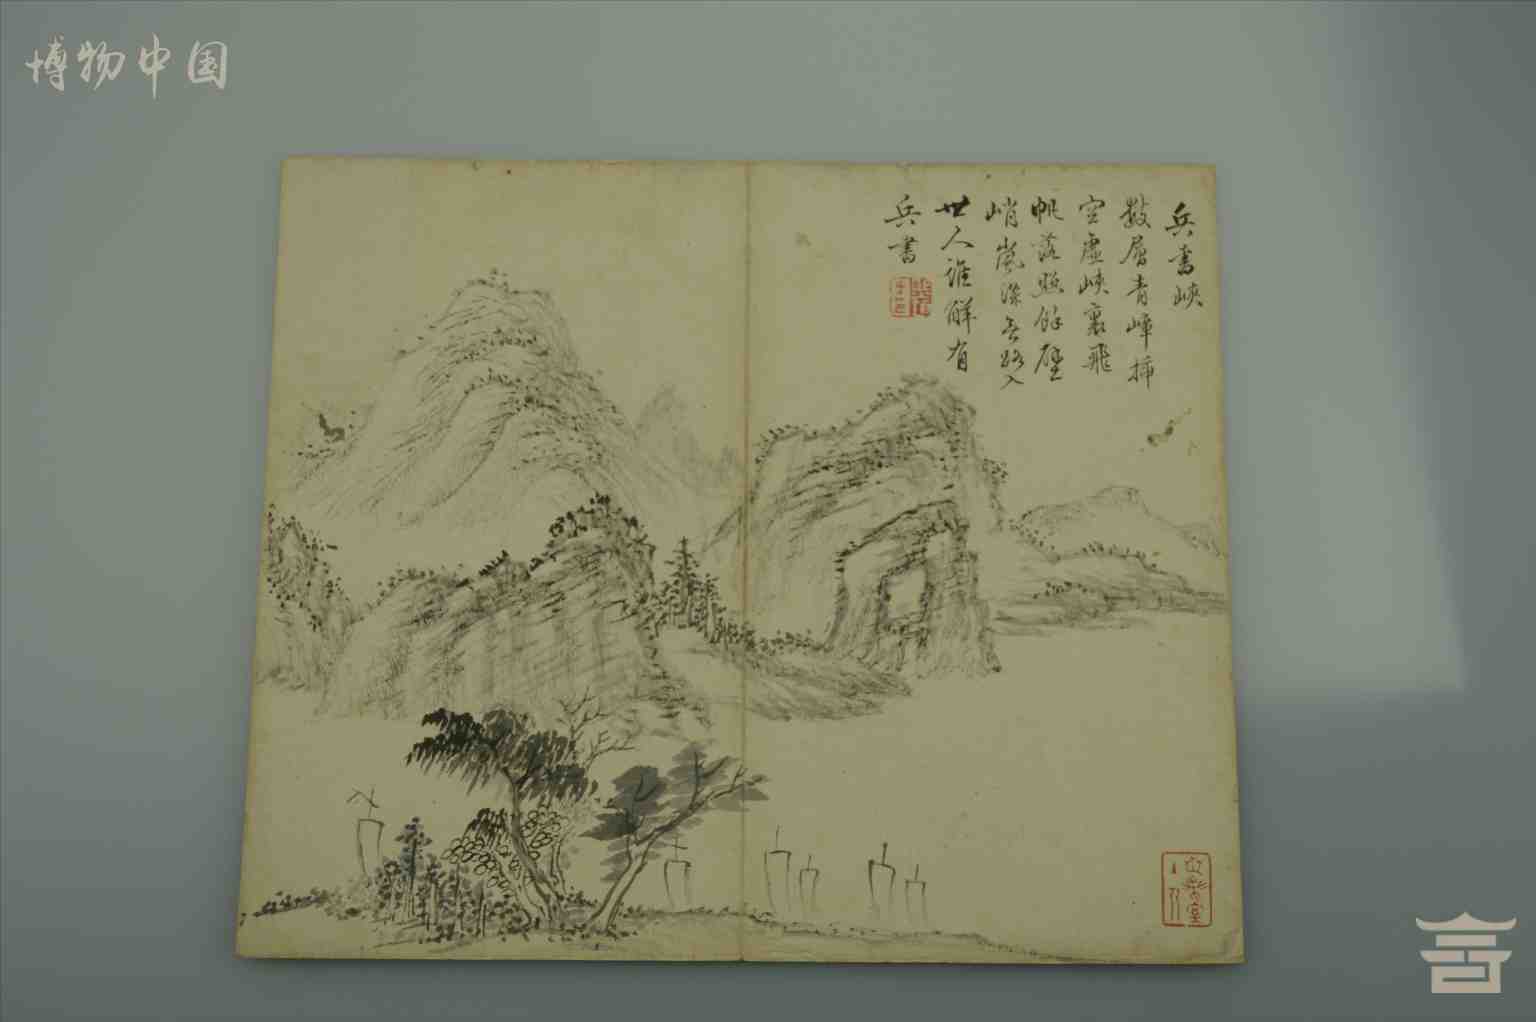 博物中国
兵書峽
數層青嶂插
空虛峽裏飛
帆落照餘壁
峭嵐深無路入
世人誰解有
兵書